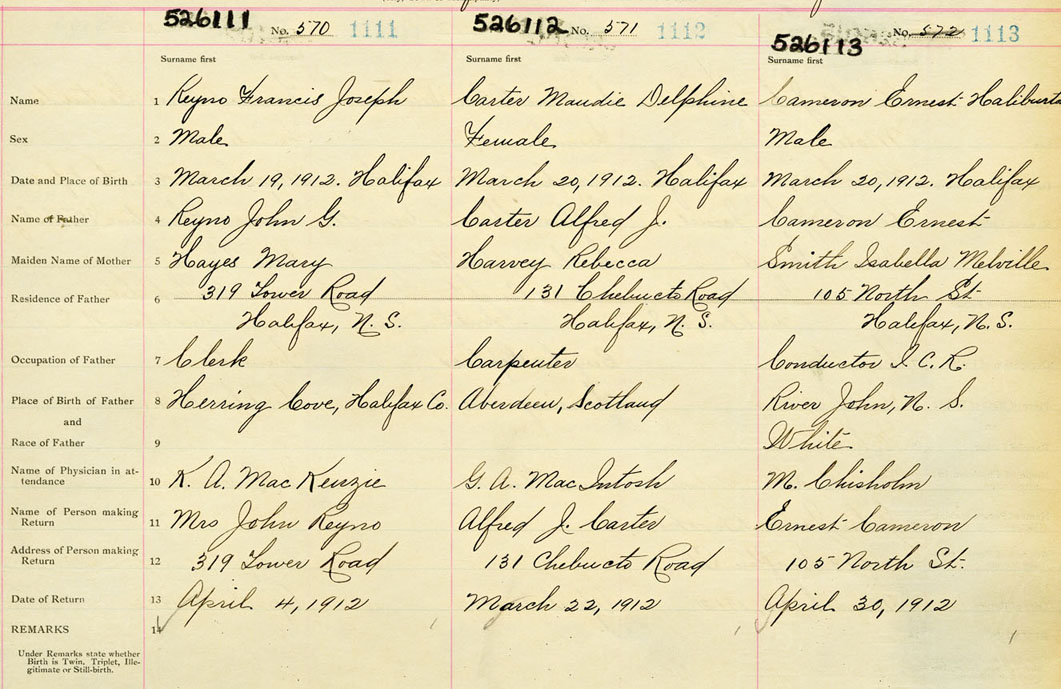 526111 No. 570 1111 526112 No. 571 1112 526113 No. 572 1113
Surname first Surname first Surname first
Name 1 Reyno Francis Joseph Carter Maudie Delphine Cameron Ernest Haliburto
Sex 2 Male Female Male
Date and Place of Birth 3 March 19, 1912. Halifax March 20, 1912. Halifax March 20, 1912. Halifax
Name of Father 4 Reyno John G. Carter Alfred J. Cameron Ernest
Maiden Name of Mother 5 Hayes Mary Harvey Rebecca Smith Isabella Melville
Residence of Father 6 319 Tower Road 131 Chebucto Road 105 North St.
Halifax, N. S. Halifax, N. S. Halifax, N. S.
Occupation of Father 7 Clerk Carpenter Conductor I. C. R.
Place of Birth of Father 8 Herring Cove, Halifax Co. Aberdeen, Scotland River John, N. S.
and
Race of Father 9 White
Name of Physician in at-
tendance 10 K. A. MacKenzie G. A. MacIntosh M. Chisholm
Name of Person making
Return 11 Mrs John Reyno Alfred J. Carter Ernest Cameron
Address of Person making
Return 12 319 Tower Road 131 Chebucto Road 105 North St.
Date of Return 13 April 4, 1912 March 22, 1912 April 30, 1912
REMARKS 14
Under Remarks state whether
Birth is Twin, Triplet, Ille-
gitimate or Still-birth.